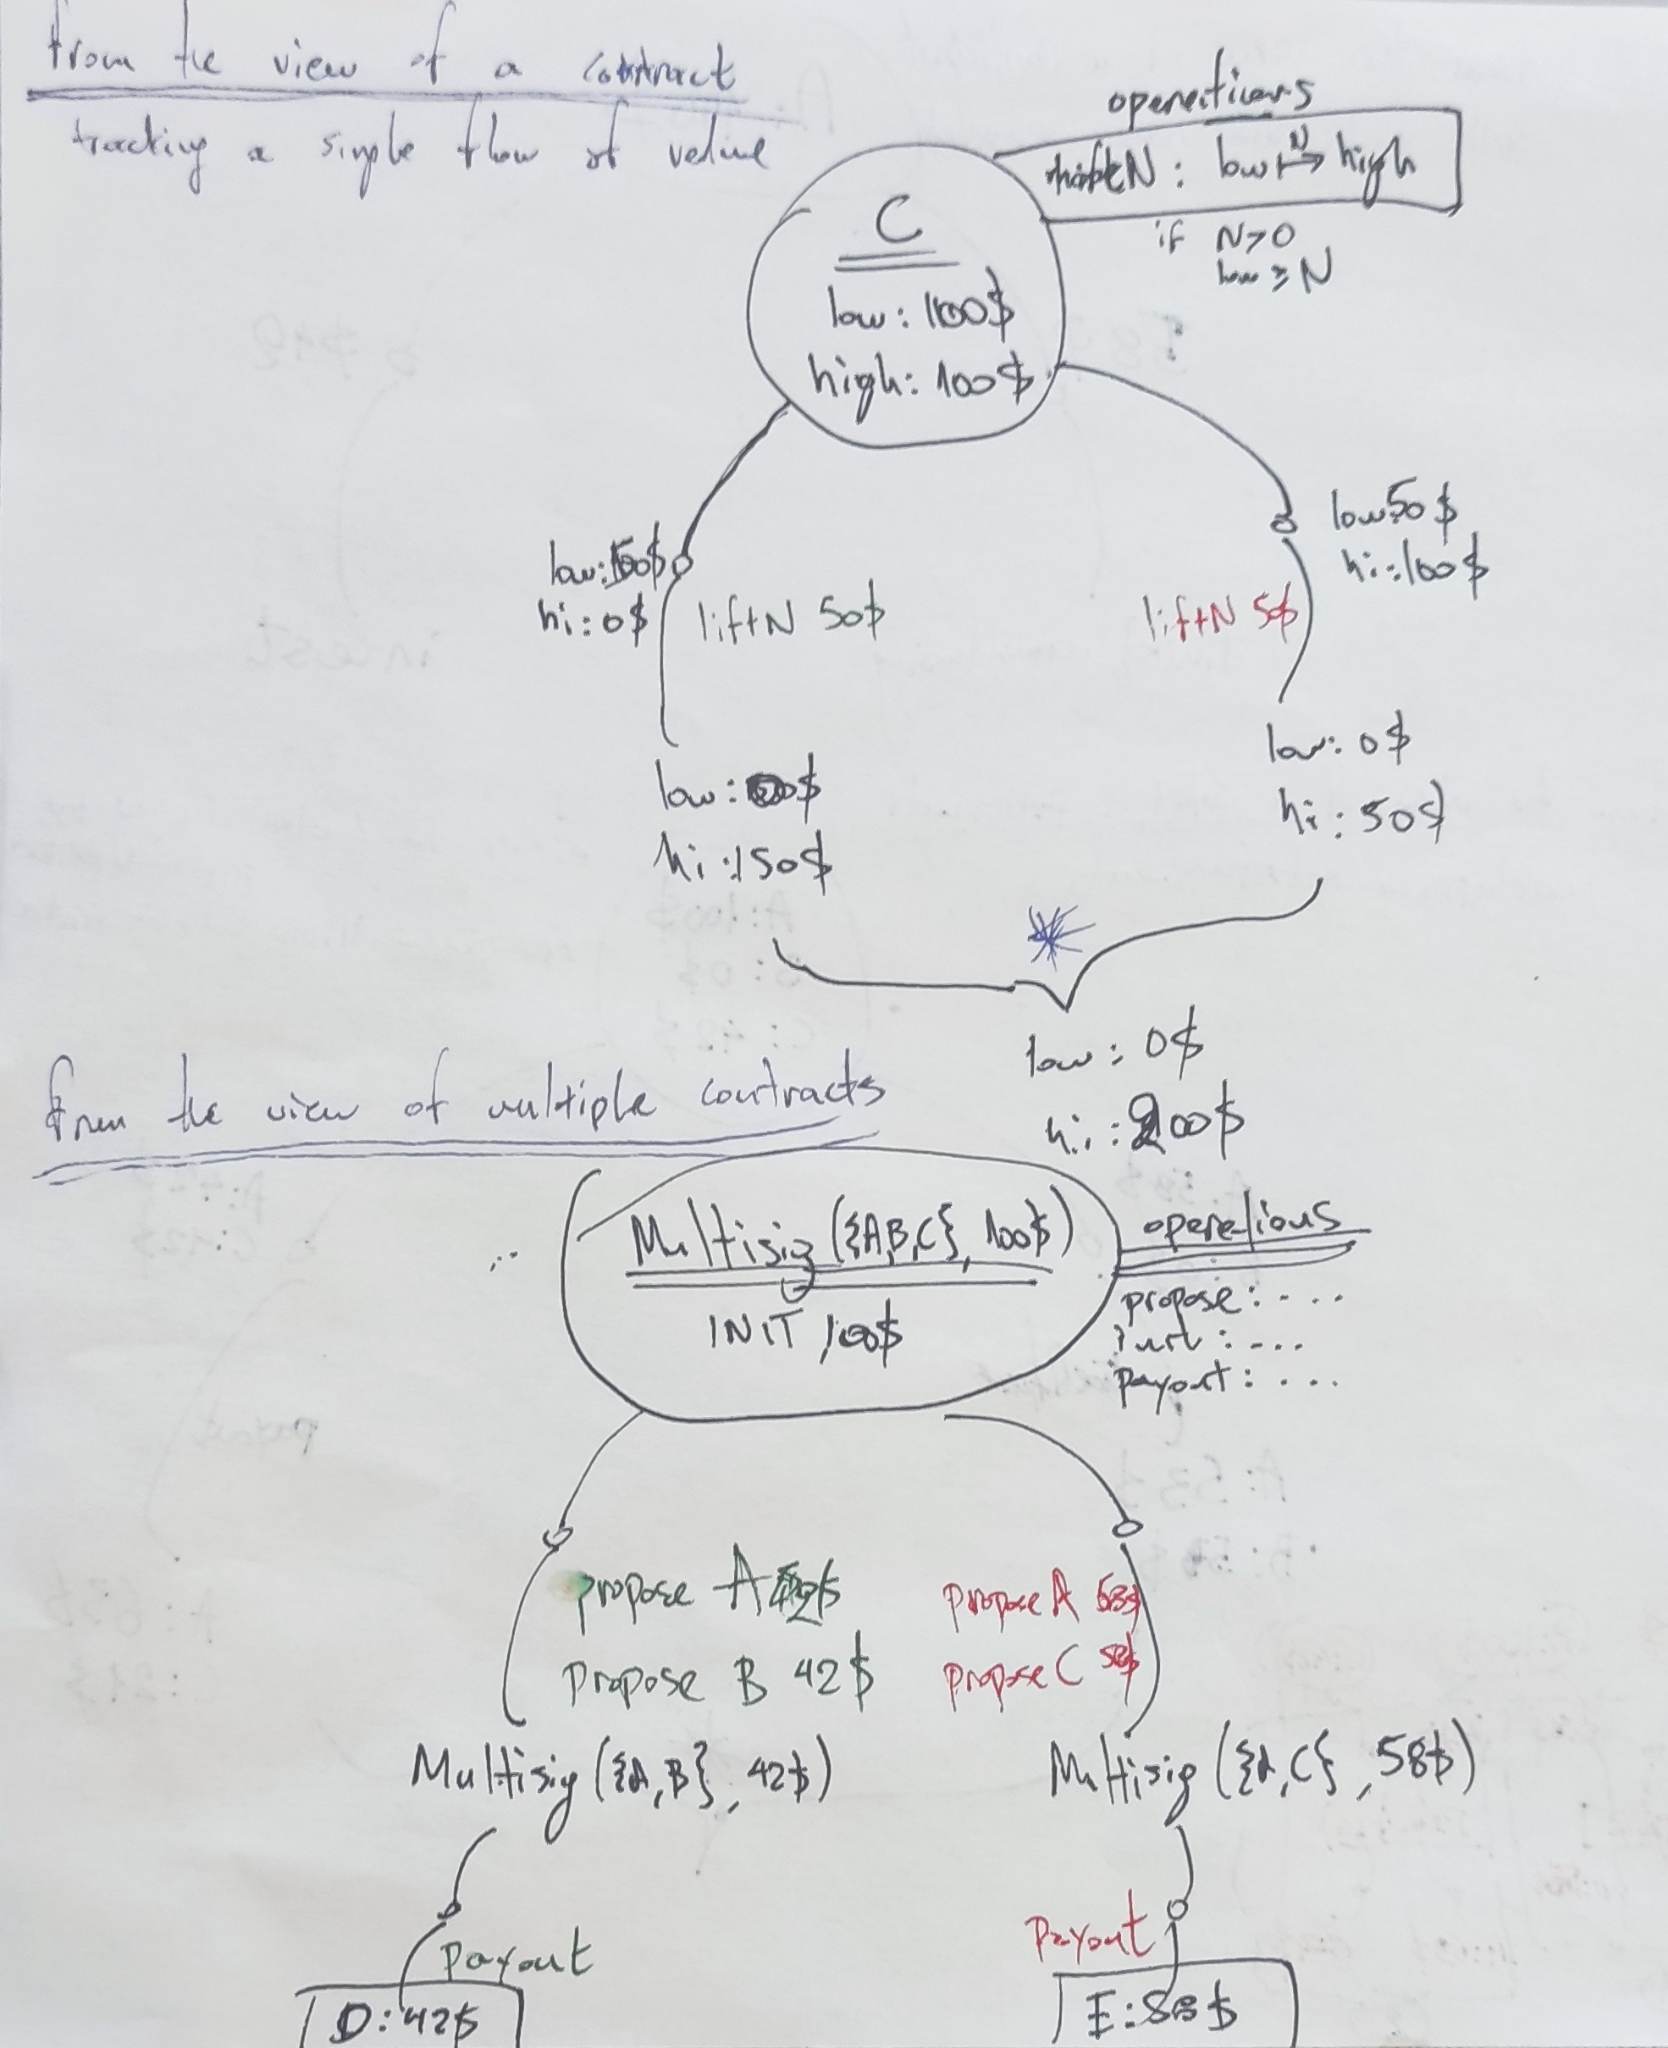 from the view of a contract
tracking a simple flow of value
operations
N: low N↦ high
if N>0
low ≥ N
C
low: 100$
high: 100$
low: $
hi: 0$
liftN 50$
low 50$
hi: 100$
liftN 50$
low: 0$
hi: 50$
low: 0$
hi: 150$
low: 0$
hi: 200$
from the view of multiple contracts
Multisig ({A,B,C}, 100$)
INIT, 100$
operations
propose: ....
: ....
payout: ....
propose A
propose B 42$
propose A 58$
propose C 58$
Multisig ({A,B}, 42$)
Multisig ({A,C}, 58$)
payout
Payout
D: 42$
E: 58$